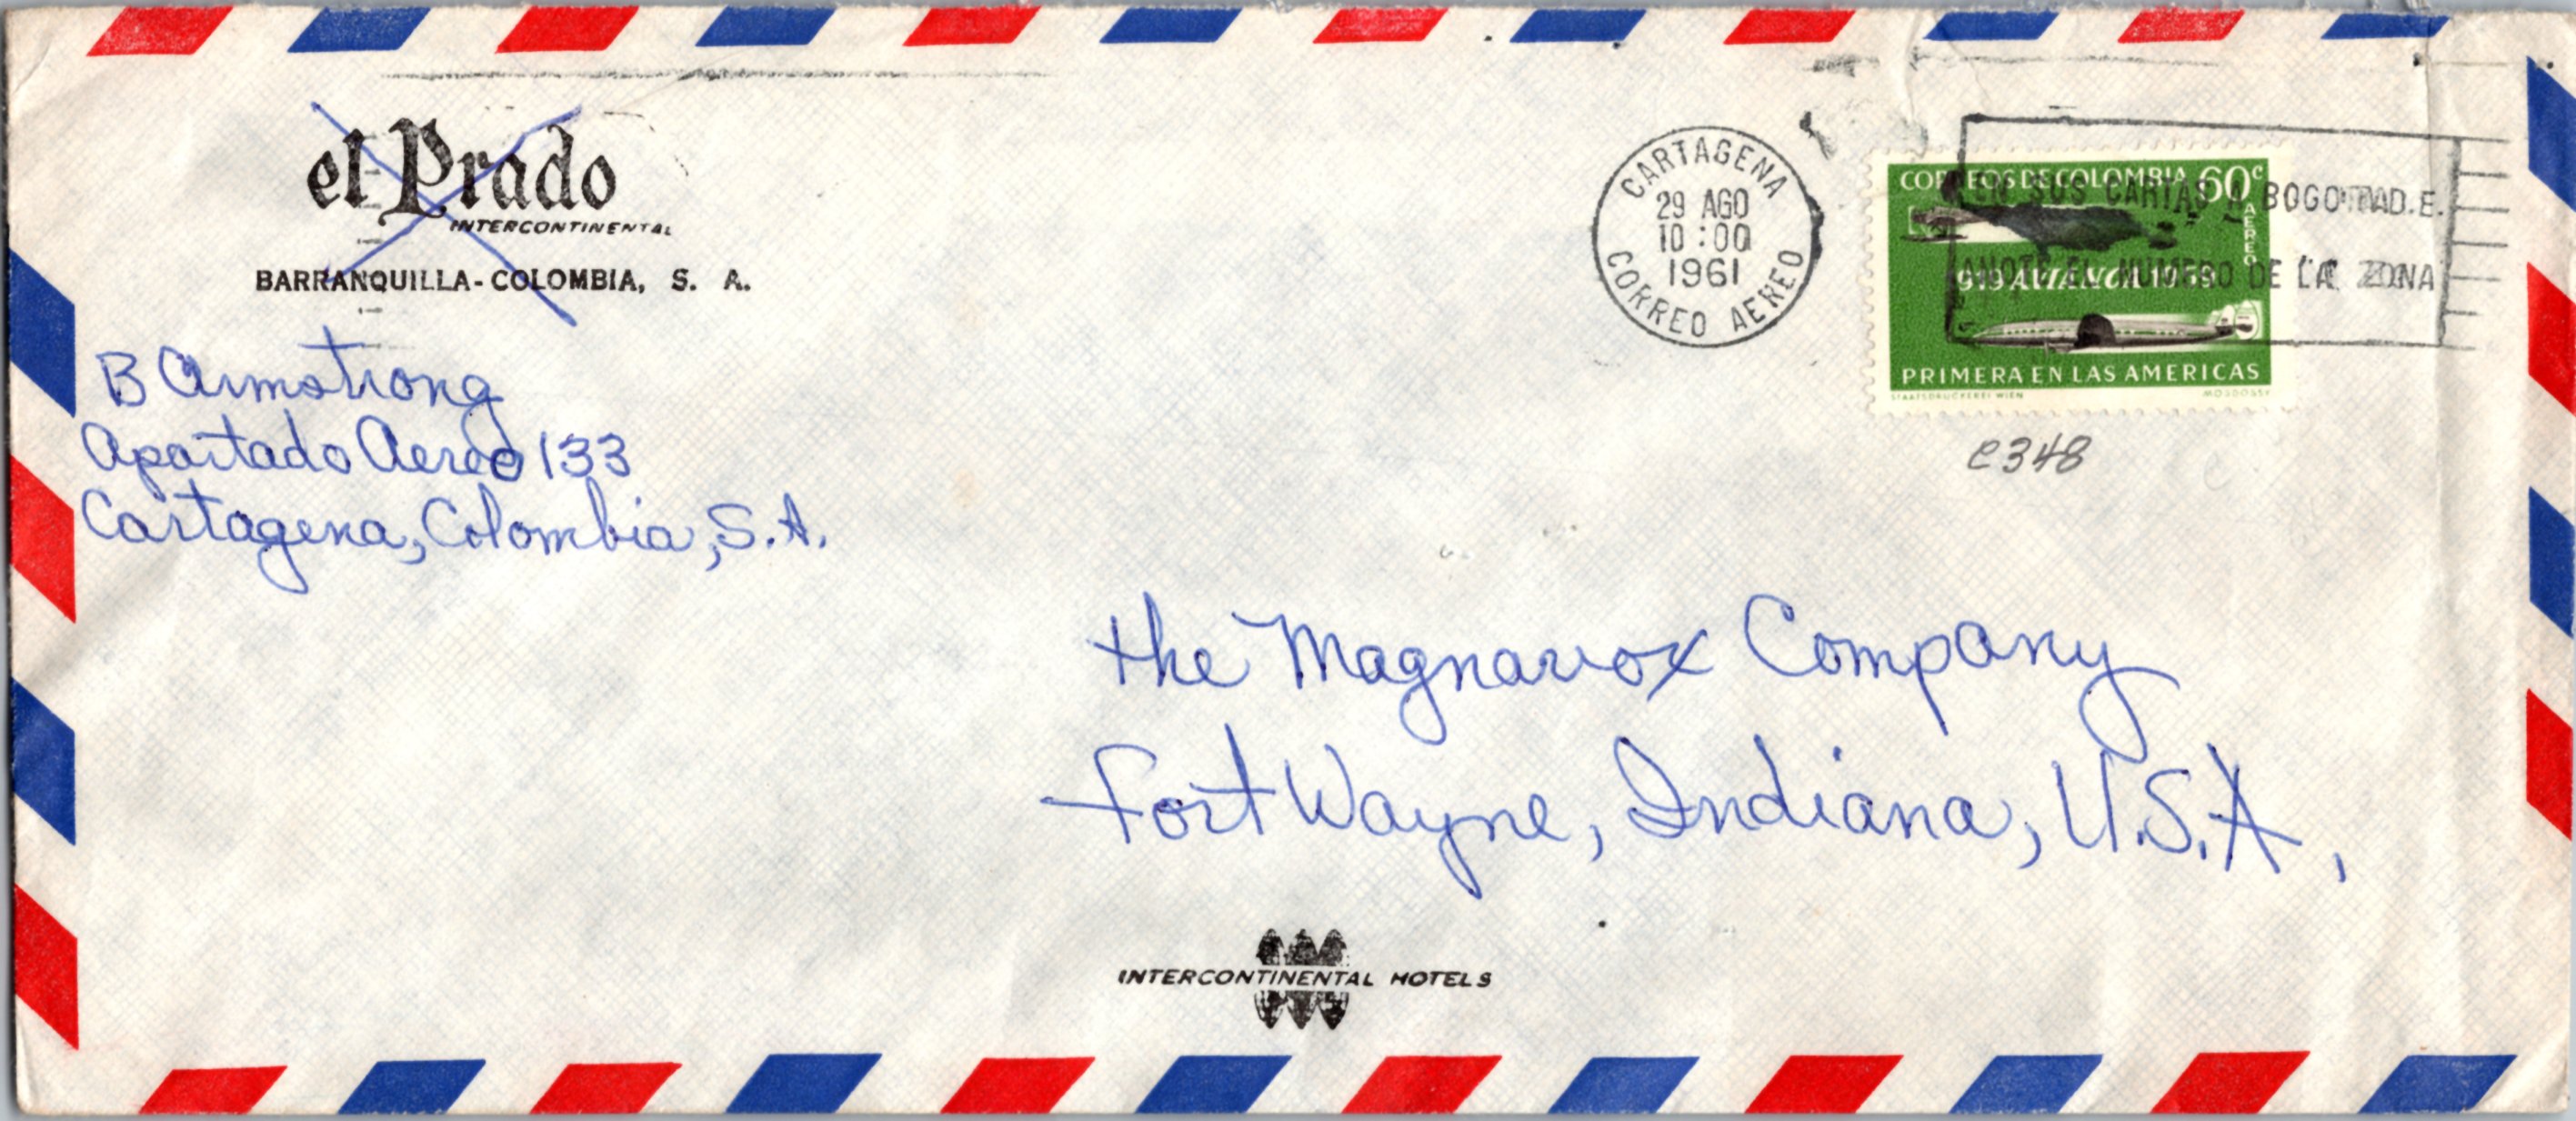 el Prado
INTERCONTINENTAL
BARRANQUILLA-COLOMBIA, S. A.
B Armstrong
Apartado Aereo 133
Cartagena, Colombia, S.A.
CARTAGENA
29 AGO
10:00
1961
CORREO AEREO
CORREOS DE COLOMBIA 60c
AEREO
1919 AVIANCA 1959
PRIMERA EN LAS AMERICAS
STAATSDRUCKEREI WIEN
EN SUS CARTAS A BOGOTA D.E.
ANOTE EL NUMERO DE LA ZONA
C348
the Magnavox Company
Fort Wayne, Indiana, U.S.A.
INTERCONTINENTAL HOTELS